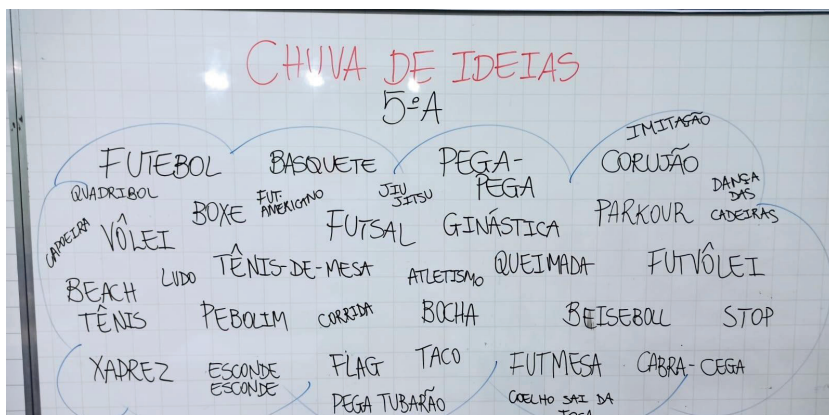 CHUVA DE IDEIAS
5ºA
IMITAÇÃO
FUTEBOL BASQUETE PEGA-
PEGA CORUJÃO
QUADRIBOL BOXE FUT.
AMERICANO JIU
JITSU DANÇA
DAS
CADEIRAS
CAPOEIRA VÔLEI FUTSAL GINÁSTICA PARKOUR
BEACH
TÊNIS LUDO TÊNIS-DE-MESA ATLETISMO QUEIMADA FUTVÔLEI
PEBOLIM CORRIDA BOCHA BEISEBOLL STOP
XADREZ ESCONDE
ESCONDE FLAG TACO FUTMESA CABRA-CEGA
PEGA TUBARÃO COELHO SAI DA